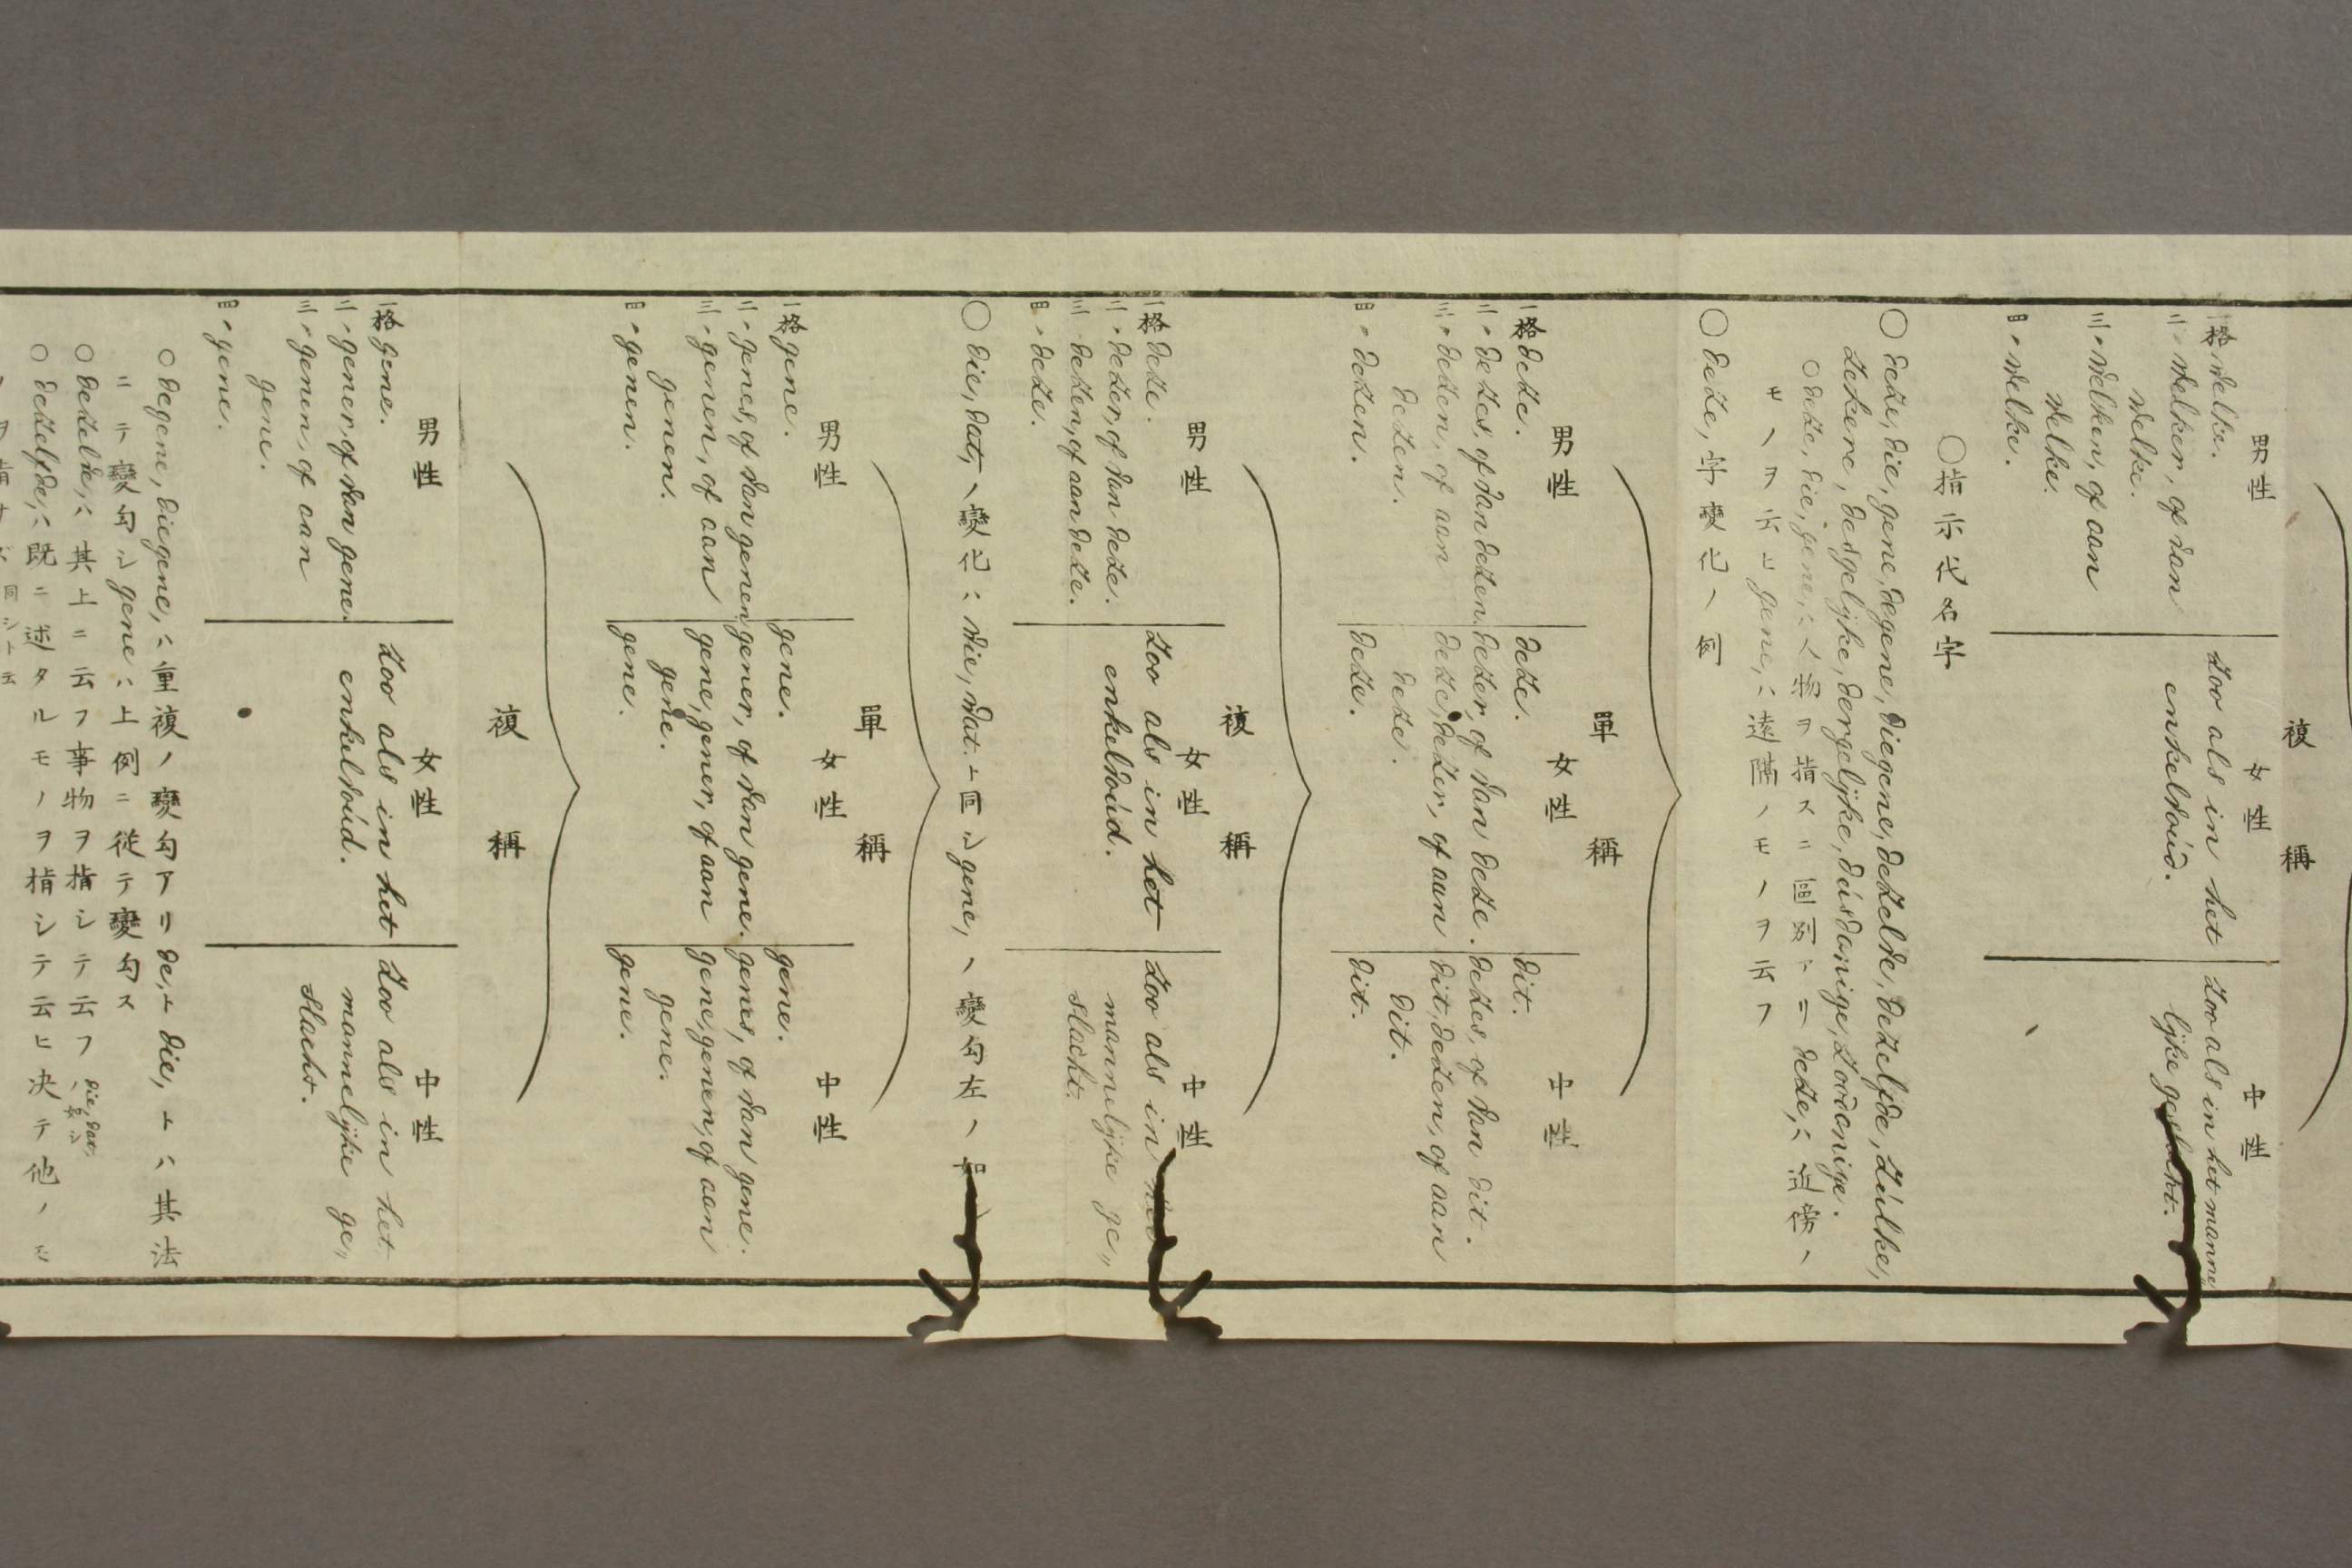 複稱
男性 女性 中性
一格 welke. zoo als in het zoo als in het manne
二〃 welker, of van enkelvoúd. lijke geslacht.
welke.
三〃 welken, of aan
welke.
四〃 welke.
〇指示代名字
〇 deze, die, gene, degene, diegene, dezelve, dezelfde, zúlke,
zekere, desgelijke, dergelijke, dúsdanige, zoodanige.
〇 deze, die, gene, ハ人物ヲ指スニ區別アリ deze, ハ近傍ノ
モノヲ云ヒ gene, ハ遠隔ノモノヲ云フ
〇 deze, 字變化ノ例
單稱
男性 女性 中性
一格 deze. deze. dit.
二〃 dezes, of van dezen. dezer, of van deze. dezes, of van dit.
三〃 dezen, of aan deze, dezer, of aan dit, dezen, of aan
dezen. deze. dit.
四〃 dezen. deze. dit.
複稱
男性 女性 中性
一格 deze. zoo als in het zoo als in het
二〃 dezer, of van deze. enkelvoúd. mannelijke ge„
三〃 dezen, of aan deze. slacht.
四〃 deze.
〇 die, dat, ノ變化ハ wie, wat. ト同シ gene, ノ變勾左ノ如
單稱
男性 女性 中性
一格 gene. gene. gene.
二〃 genes, of van genen. gener, of van gene. genes, of van gene.
三〃 genen, of aan gene, gener, of aan gene, genen, of aan
genen. gene. gene.
四〃 genen. gene. gene.
複稱
男性 女性 中性
一格 gene. zoo als in het zoo als in het
二〃 gener, of van gene. enkelvoúd. mannelijke ge„
三〃 genen, of aan slacht.
gene.
四〃 gene.
〇 degene, diegene, ハ重複ノ變勾アリ de, ト die, トハ其法
ニテ變勾シ gene ハ上例ニ從テ變勾ス
〇 dezelve, ハ其上ニ云フ事物ヲ指シテ云フ die, dat,
〇 dezelfde, ハ既ニ述タルモノヲ指シテ云ヒ决テ他ノモ
ノヲ指サズ